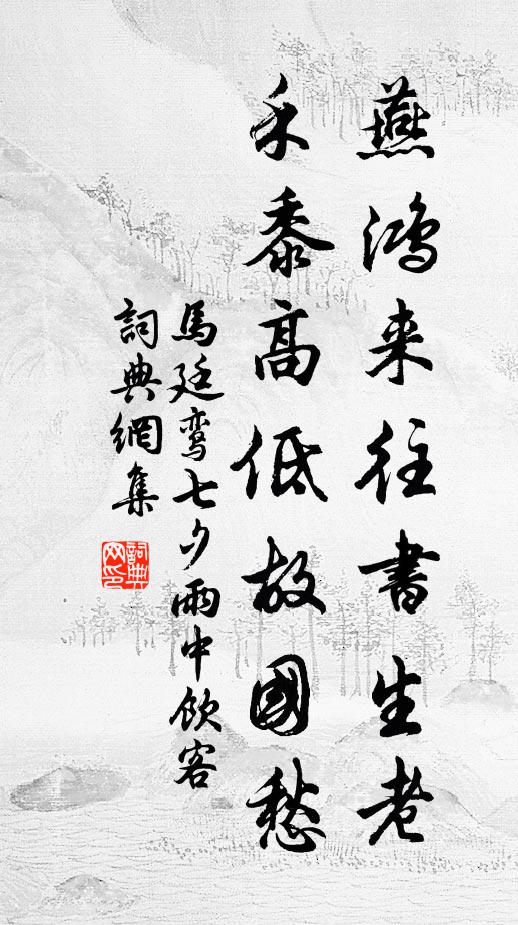 燕鸿来往書生老
禾黍高低故國愁
馬廷鸾七夕雨中飲客
詞典網集
詞典网印